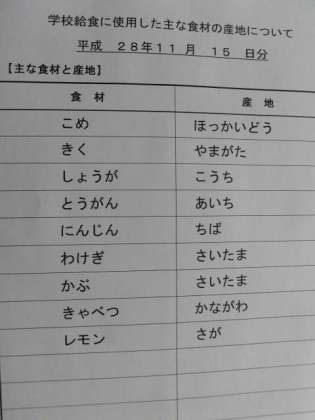 学校給食に使用した主な食材の産地について
平成 28年11月 15 日分
【主な食材と産地】
食 材 産 地
こめ ほっかいどう
きく やまがた
しょうが こうち
とうがん あいち
にんじん ちば
わけぎ さいたま
かぶ さいたま
きゃべつ かながわ
レモン さが